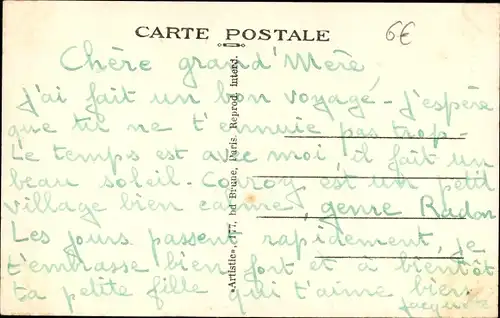 CARTE POSTALE
6€
Chère grand'Mère
J'ai fait un bon voyage - J'espère
que tu ne t'ennuie pas trop -
Le temps est avec moi il fait un
beau soleil - est un petit
village bien calme, genre Radon
Les jours passent rapidement, je
t'embrasse bien fort et à bientôt
ta petite fille qui t'aime bien
«Artistic», 177, bd Brune, Paris. Reprod. Interd.